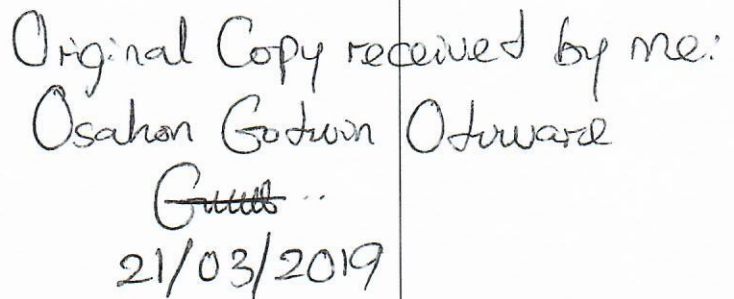 Original Copy received by me:
Osahon Godwin
21/03/2019